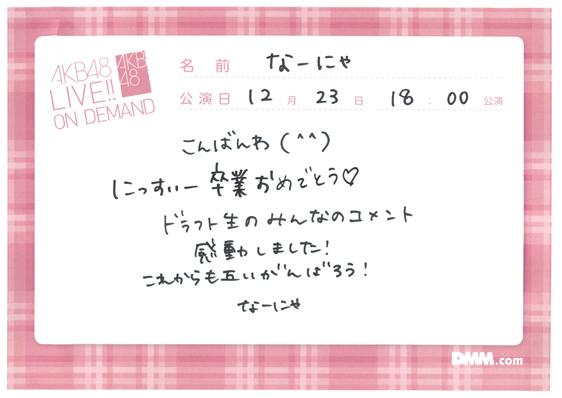 AKB48
LIVE!!
ON DEMAND
AKB
48
名前 なーにゃ
公演日 12月 23日 18:00公演
こんばんわ(^^)
にっすぃー 卒業おめでとう♡
ドラフト生のみんなのコメント
感動しました!
これからも互いがんばろう!
なーにゃ
DMM.com